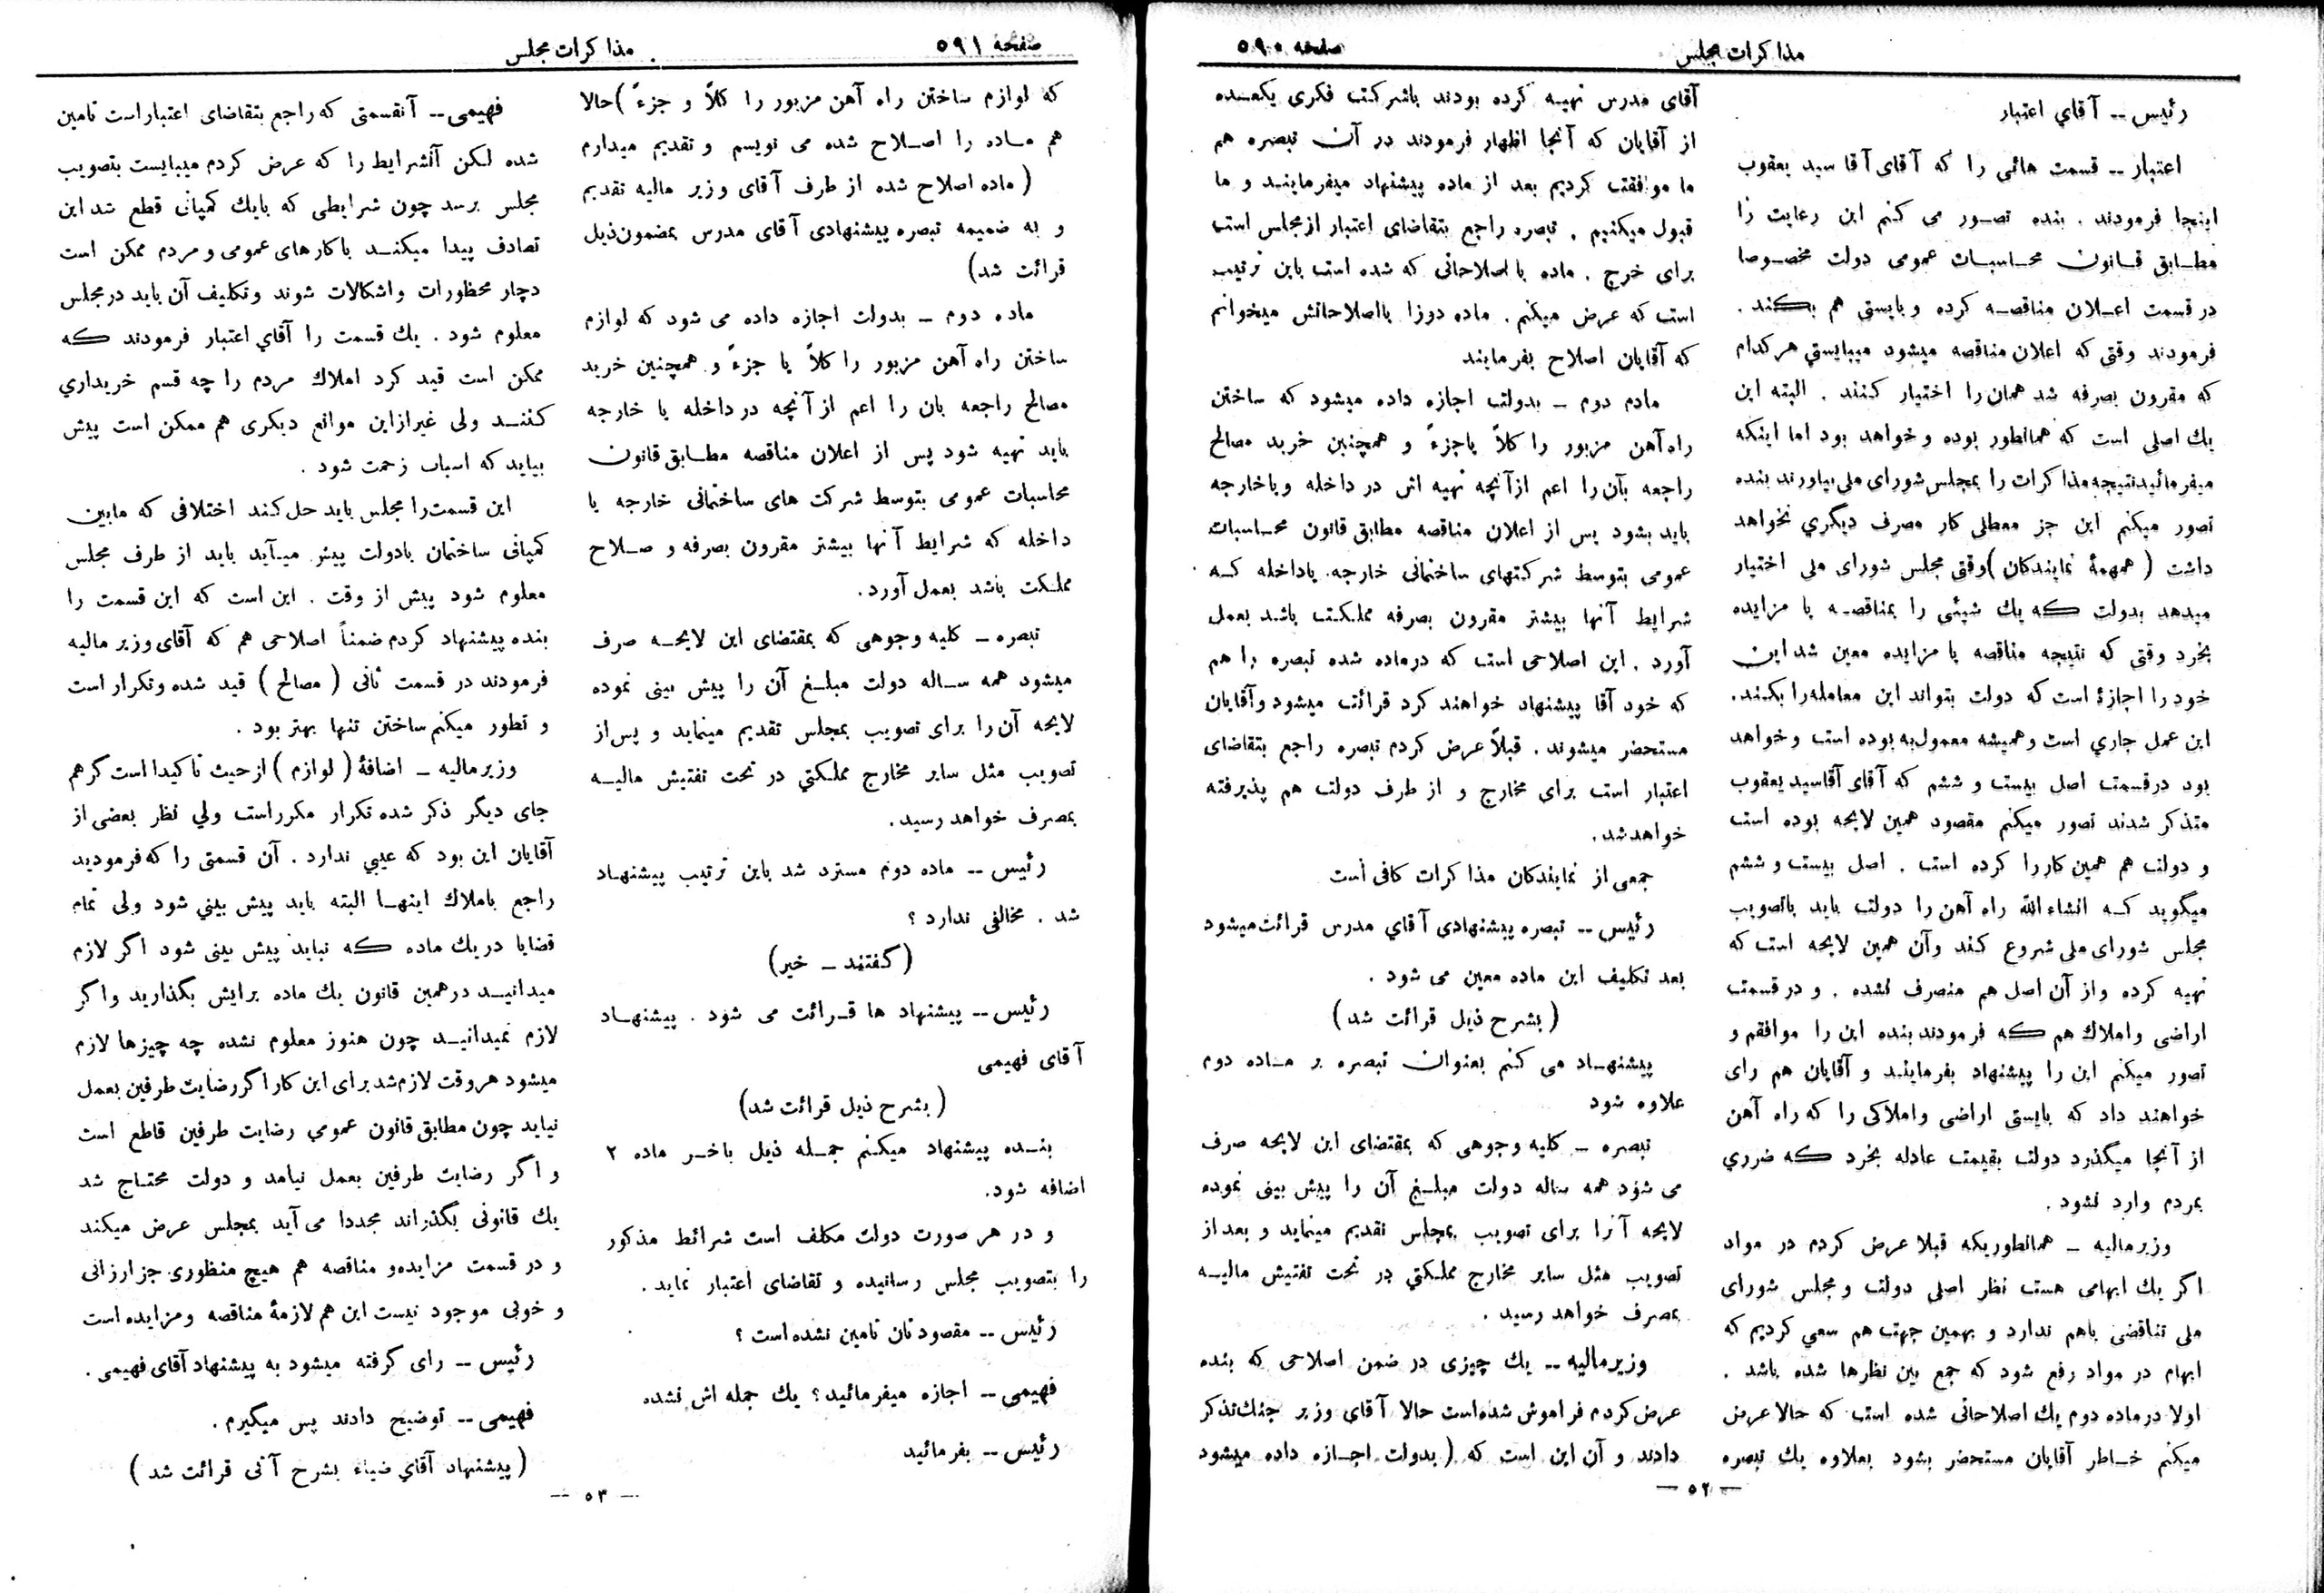 مذاکرات مجلس
صفحه ۵۹۰
رئیس -- آقاي اعتبار
اعتبار -- قسمت هائی را که آقای آقا سید یعقوب
اینجا فرمودند . بنده تصـور می کنم این رعایت را
مطـابق قـانون محـاسبـات عمومی دولت مخصـوصا
در قسمت اعـلان مناقصـه کرده و بایستی هم بکند .
فرمودند وقتی که اعلان مناقصه میشود میبایستي هر کدام
که مقرون بصرفه شد همان را اختیار کنند . البته این
یك اصلی است که همانطور بوده و خواهد بود اما اینکه
میفرمائید نتیجه مذاکرات را بمجلس شورای ملی بیاورند بنده
تصور میکنم این جز معطلی کار مصرف دیگري نخواهد
داشت ( همهمهٔ نمایندکان ) وقتی مجلس شورای ملی اختیار
میدهد بدولت که یك شیئی را بمناقصـه یا مزایده
بخرد وقتی که نتیجه مناقصه یا مزایده معین شد این
خود را اجازهٔ است که دولت بتواند این معامله را بکند.
این عمل جاري است و همیشه معمول‌به بوده است و خواهد
بود در قسمت اصل بیست و ششم که آقای آقاسید یعقوب
متذکر شدند تصور میکنم مقصود همین لایحه بوده است
و دولت هم همین کار را کرده است . اصل بیست و ششم
میگوید کـه انشاءالله راه آهن را دولت باید باتصویب
مجلس شورای ملی شروع کند وآن همین لایحه است که
تهیه کرده واز آن اصل هم منصرف نشده . و در قسمت
اراضی واملاك هم که فرمودند بنده این را موافقم و
تصور میکنم این را پیشنهاد بفرمایند و آقایان هم رای
خواهند داد که بایستی اراضی واملاکی را که راه آهن
از آنجا میگذرد دولت بقیمت عادله بخرد که ضرري
بمردم وارد نشود .
وزیر مالیه ــ همانطوریکه قبلا عرض کردم در مواد
اگر یك ابهامی هست نظر اصلی دولت و مجلس شورای
ملی تناقضی باهم ندارد و بهمین جهت هم سعي کردیم که
ابهام در مواد رفع شود که جمع بین نظرها شده باشد .
اولا در ماده دوم یك اصلاحاتی شده است که حالا عرض
میکنم خـاطر آقایان مستحضر بشود بعلاوه یك تبصره
— ۵۲ —
آقای مدرس تهیـه کرده بودند باشرکت فکری یکعـده
از آقایان که آنجا اظهار فرمودند در آن تبصره هم
ما موافقت کردیم بعد از ماده پیشنهاد میفرماینـد و ما
قبول میکنیم . تبصره راجع بتقاضای اعتبار از مجلس است
برای خرج . ماده با اصلاحاتی که شده است باین ترتیب
است که عرض میکنم . ماده دوزا بااصلاحاتش میخوانم
که آقایان اصلاح بفرمایند
مادم دوم ــ بدولت اجازه داده میشود که ساختن
راه آهن مزبور را کلاً یاجزءً و همچنین خرید مصالح
راجعه بآن را اعم ازآنچه تهیه اش در داخله ویاخارجه
باید بشود پس از اعلان مناقصه مطابق قانون محـاسبات
عمومی بتوسط شرکتهای ساختمانی خارجه. یاداخله کـه
شرایط آنها بیشتر مقرون بصرفه مملکت باشد بعمل
آورد . این اصلاحی است که درماده شده تبصره را هم
که خود آقا پیشنهاد خواهند کرد قرائت میشود وآقایان
مستحضر میشوند . قبلاً عرض کردم تبصره راجع بتقاضای
اعتبار است برای مخارج و از طرف دولت هم پذیرفته
خواهد شد.
جمعی از نمایندکان مذاکرات کافی است
رئیس -- تبصره پیشنهادی آقاي مدرس قرائت میشود
بعد تکلیف این ماده معین می شود .
( بشرح ذیل قرائت شد )
پیشنهـاد می کنم بعنوان تبصره بر مـاده دوم
علاوه شود
تبصره ــ کلیه وجوهی که بمقتضای این لایحه صرف
می شود همه ساله دولت مبلـغ آن را پیش بینی نموده
لایحه آنرا برای تصویب بمجلس تقدیم مینماید و بعد از
تصویب مثل سایر مخارج مملکتي در تحت تفتیش مالیـه
بمصرف خواهد رسید .
وزیرمالیه -- یك چیزی در ضمن اصلاحی که بنده
عرض کردم فراموش شده‌است حالا آقای وزیر جنك تذکر
دادند و آن این است که ( بدولت اجـازه داده میشود
صفحه ۵۹۱
مذاکرات مجلس
که لوازم ساختن راه آهن مزبور را کلاً و جزءً ) حالا
هم مـاده را اصـلاح شده می نویسم و تقدیم میدارم
( ماده اصلاح شده از طرف آقای وزیر مالیه تقدیم
و به ضمیمه تبصره پیشنهادی آقای مدرس بمضمون ذیل
قرائت شد)
ماده دوم ــ بدولت اجازه داده می شود که لوازم
ساختن راه آهن مزبور را کلاً یا جزءً و همچنین خرید
مصالح راجعه بان را اعم از آنچه در داخله یا خارجه
باید تهیه شود پس از اعلان مناقصه مطـابق قانون
محاسبات عمومی بتوسط شرکت های ساختمانی خارجه یا
داخله که شرایط آنها بیشتر مقرون بصرفه و صـلاح
مملکت باشد بعمل آورد.
تبصره ــ کلیه وجوهی که بمقتضای این لایحـه صرف
میشود همه سـاله دولت مبلـغ آن را پیش بینی نموده
لایحه آن را برای تصویب بمجلس تقدیم مینماید و پس از
تصویب مثل سایر مخارج مملکتي در تحت تفتیش مالیـه
بمصرف خواهد رسید.
رئیس -- ماده دوم مسترد شد باین ترتیب پیشنهـاد
شد . مخالفی ندارد ؟
( گفتند ــ خیر)
رئیس -- پیشنهاد ها قـرائت می شود . پیشنهـاد
آقای فهیمی
( بشرح ذیل قرائت شد)
بنـده پیشنهاد میکنم جمـله ذیل باخـر ماده ۲
اضافه شود.
و در هر صورت دولت مکلف است شرائط مذکور
را بتصویب مجلس رسانیده و تقاضای اعتبار نماید .
رئیس -- مقصودتان تامین نشده است ؟
فهیمی -- اجازه میفرمائید ؟ یك جمله اش نشده
رئیس -- بفرمائید
— ۵۳ —
فهیمی -- آنقسمتی که راجع بتقاضای اعتبار است تامین
شده لکن آنشرایط را که عرض کردم میبایست بتصویب
مجلس برسد چون شرایطی که بایك کمپانی قطع شد این
تصادف پیدا میکنـد باکارهای عمومی و مردم ممکن است
دچار محظورات واشکالات شوند وتکلیف آن باید در مجلس
معلوم شود . یك قسمت را آقاي اعتبار فرمودند که
ممکن است قید کرد املاك مردم را چه قسم خریداري
کننـد ولی غیرازاین موانع دیگری هم ممکن است پیش
بیاید که اسباب زحمت شود .
این قسمت را مجلس باید حل کند اختلافی که مابین
کمپانی ساختمان بادولت پیش میـآید باید از طرف مجلس
معلوم شود پیش از وقت . این است که این قسمت را
بنده پیشنهاد کردم ضمناً اصلاحی هم که آقای وزیر مالیه
فرمودند در قسمت ثانی ( مصالح ) قید شده وتکرار است
و تطور میکنم ساختن تنها بهتر بود .
وزیر مالیه ــ اضافهٔ ( لوازم ) از حیث تاکیدا است گرهم
جای دیگر ذکر شده تکرار مکرر است ولي نظر بعضی از
آقایان این بود که عیبي ندارد . آن قسمتی را که فرمودید
راجع باملاك اینهـا البته باید پیش بیني شود ولی تمام
قضایا در یك ماده که نباید پیش بینی شود اگر لازم
میدانیـد در همین قانون یك ماده برایش بگذارید واگر
لازم نمیدانیـد چون هنوز معلوم نشده چه چیزها لازم
میشود هر وقت لازم شد برای این کار اگر رضایت طرفین بعمل
نیاید چون مطابق قانون عمومي رضایت طرفین قاطع است
و اگر رضایت طرفین بعمل نیامد و دولت محتاج شد
یك قانونی بگذراند مجددا می آید بمجلس عرض میکند
و در قسمت مزایده‌و مناقصه هم هیچ منظوری جز ارزانی
و خوبی موجود نیست این هم لازمهٔ مناقصه و مزایده است
رئیس -- رای گرفته میشود به پیشنهاد آقای فهیمی .
فهیمی -- توضیح دادند پس میگیرم .
( پیشنهاد آقاي ضیاء بشرح آتی قرائت شد )